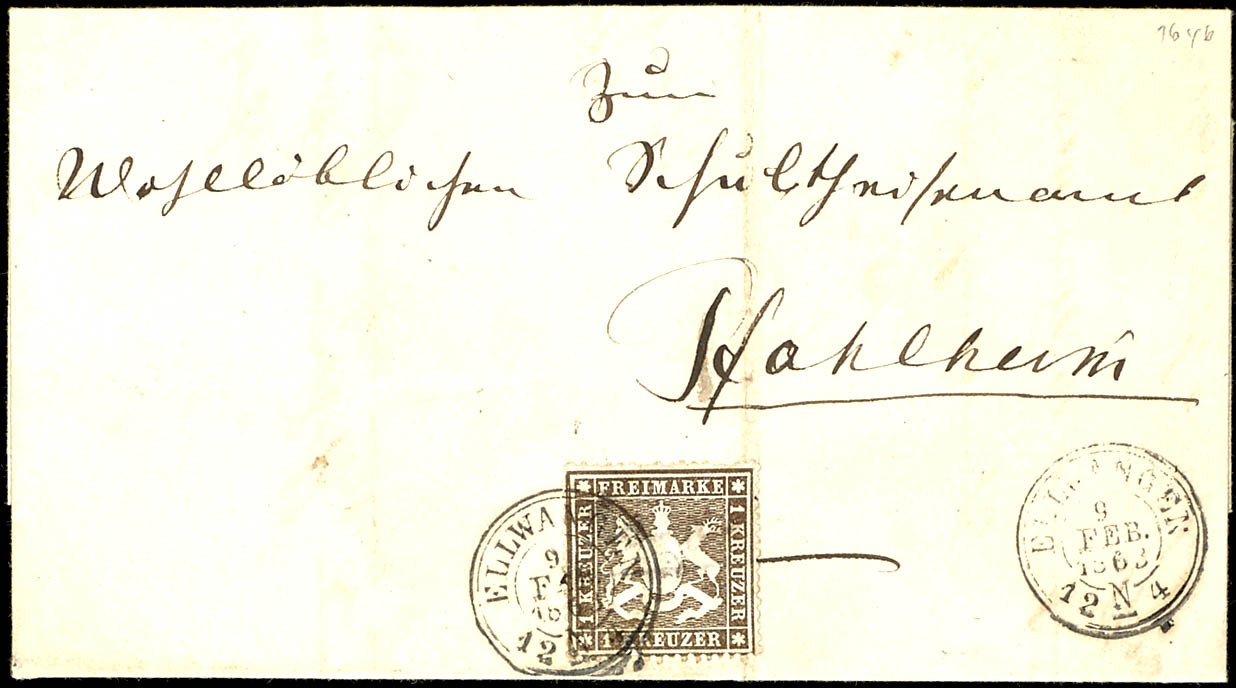 1646
Zum
Wohllöblichen Schultheisenamt
Pfahlheim
FREIMARKE
1 KREUZER
1 KREUZER
1 KREUZER
ELLWANGEN
9
FE
186
12
ELLWANGEN
9
FEB.
1863
12 N 4